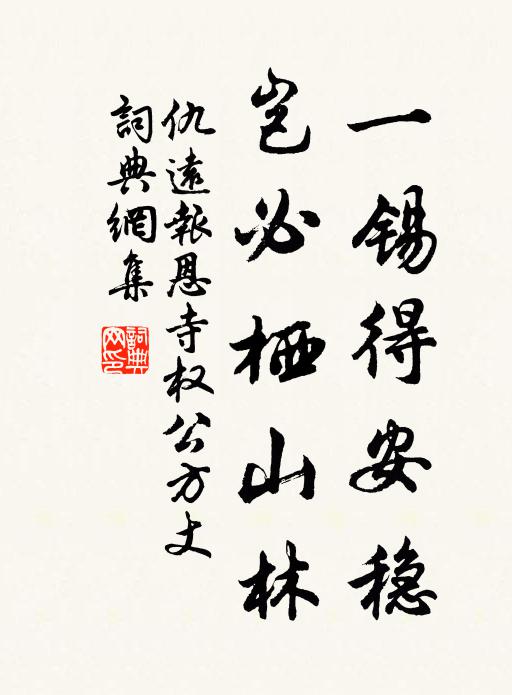 一锡得安稳
岂必栖山林
仇遠報恩寺权公方丈
詞典網集
詞典网印